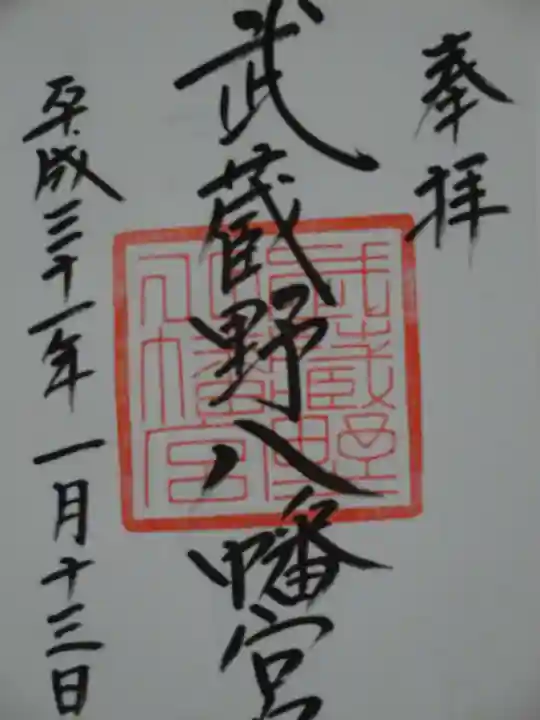 奉拝
武蔵野八幡宮
平成三十一年一月十三日
武蔵野
八幡宮